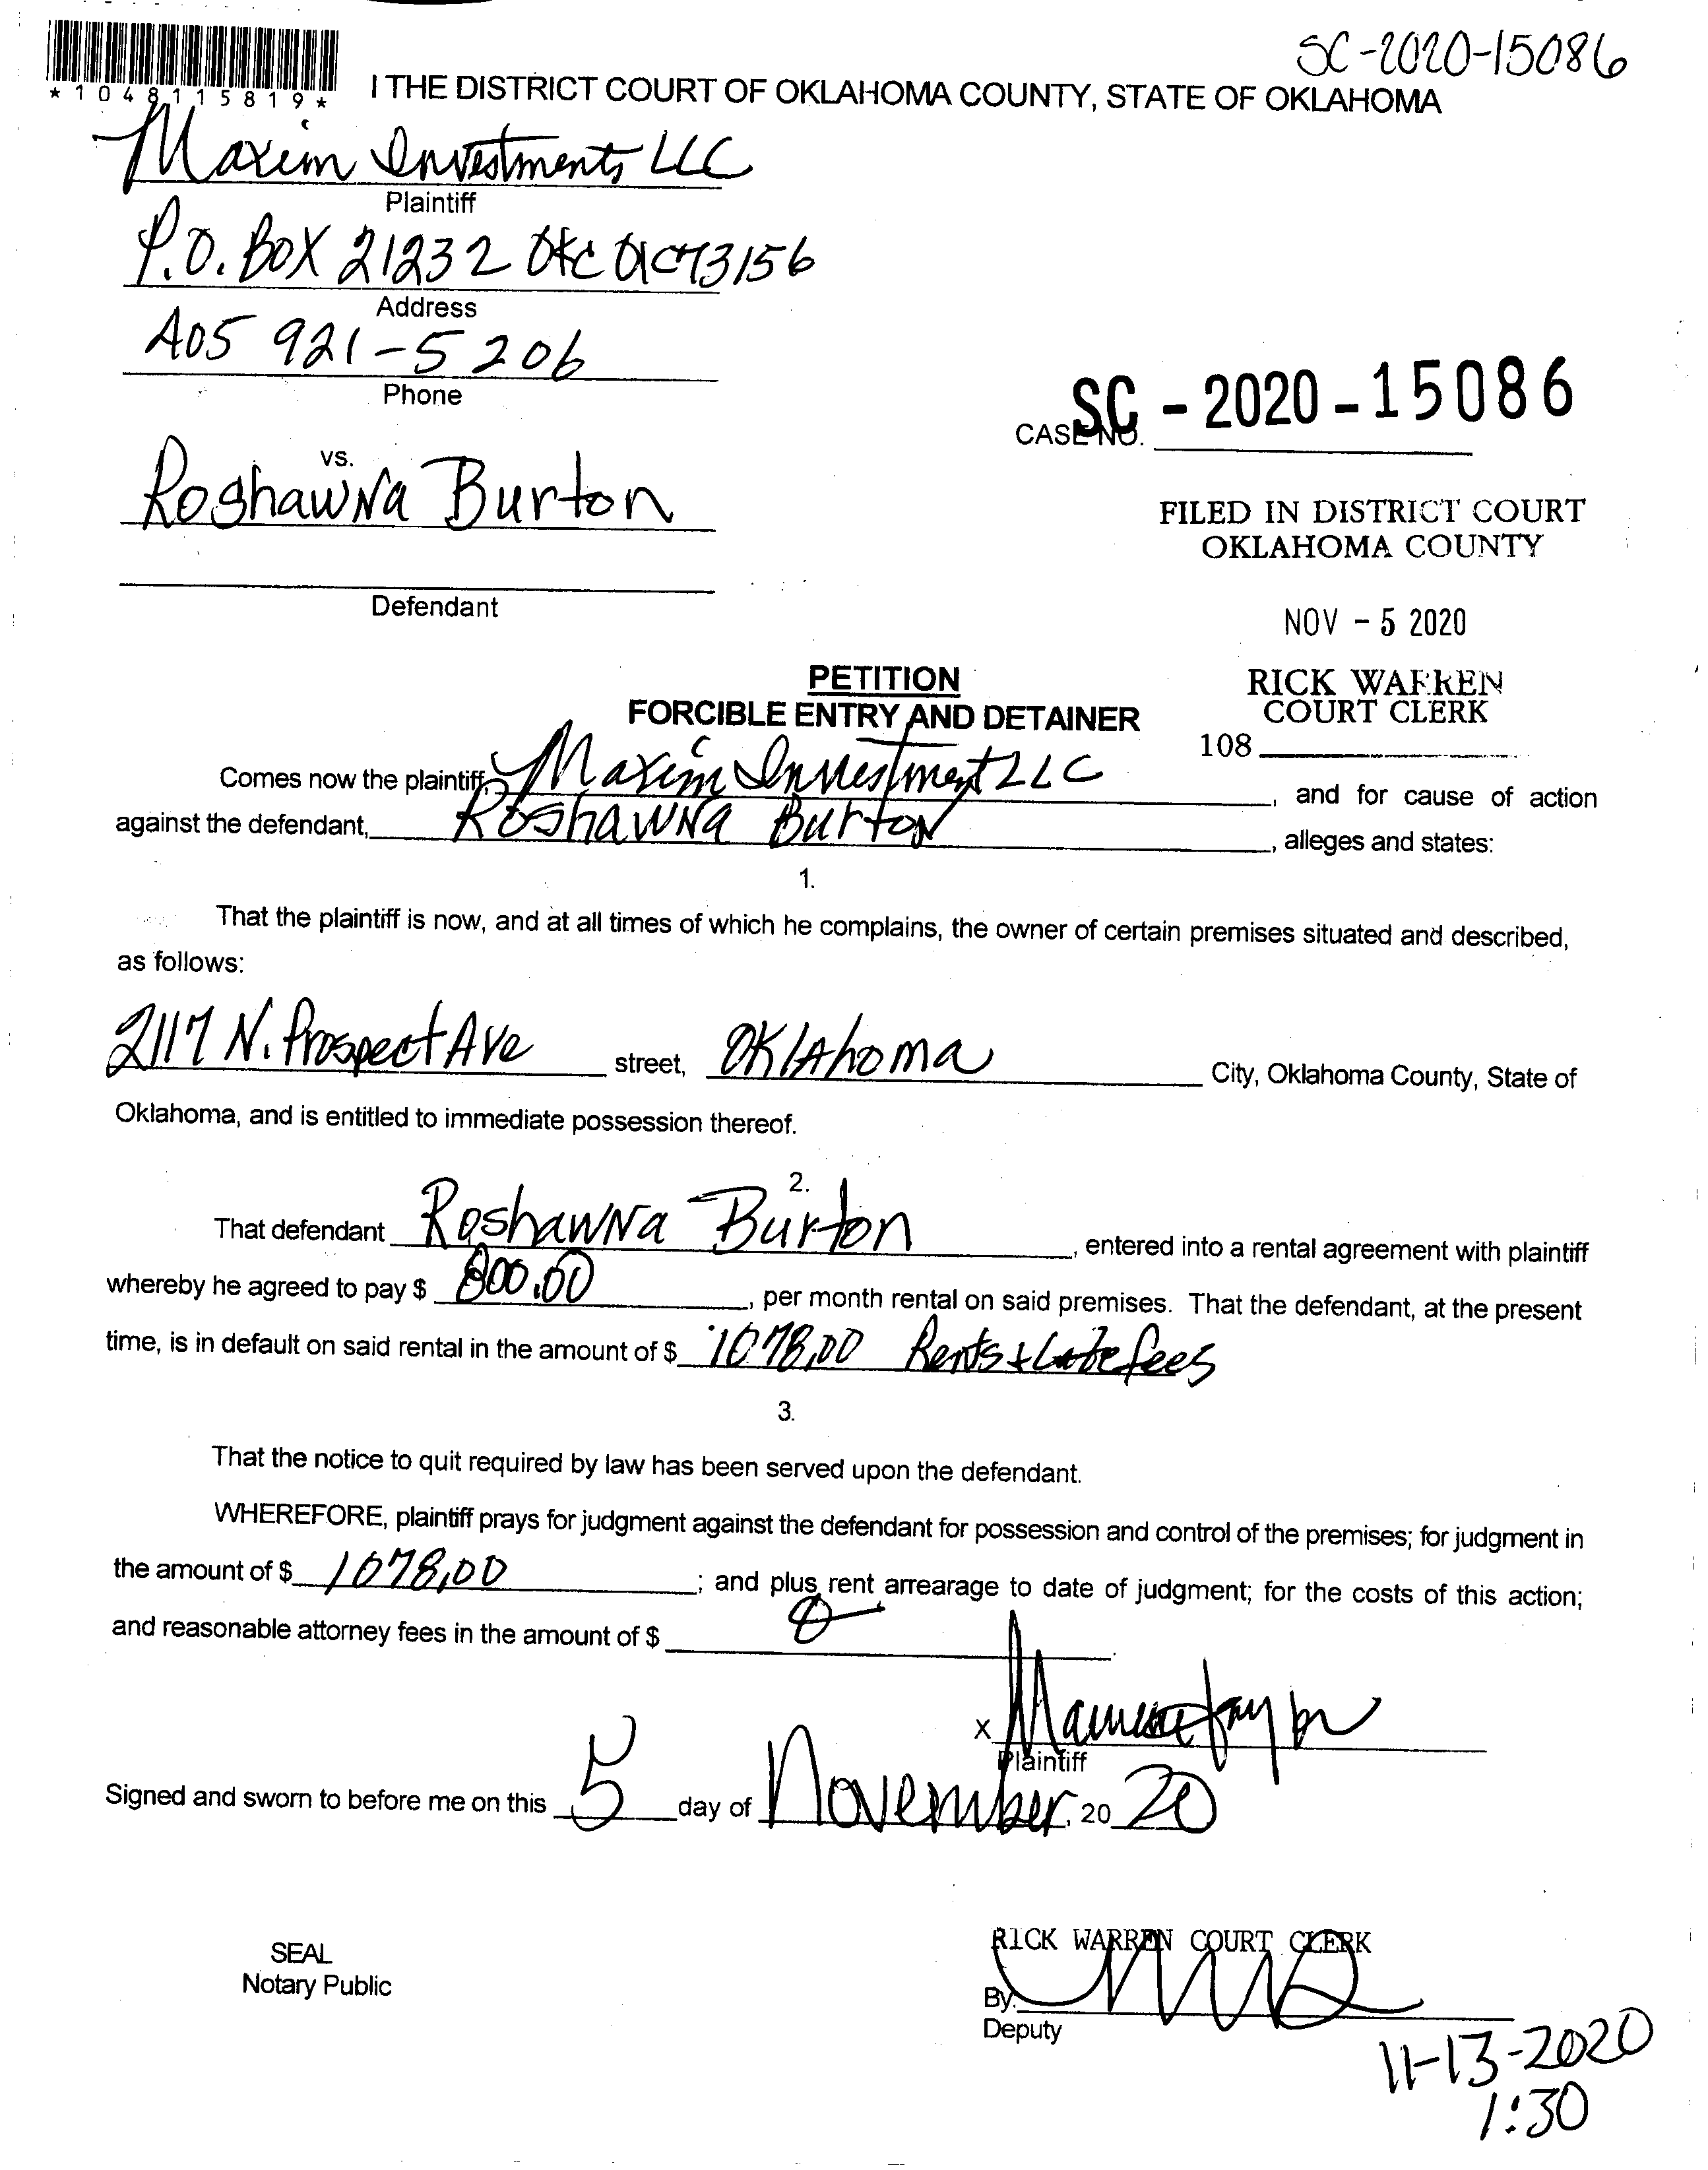 SC-2020-15086
*1048115819*
I THE DISTRICT COURT OF OKLAHOMA COUNTY, STATE OF OKLAHOMA
Maxim Investments LLC
Plaintiff
P.O. BOX 21232 OKC OK 73156
Address
405 921-5206
Phone
CASE NO. SC - 2020 - 15086
vs.
Roshawna Burton
FILED IN DISTRICT COURT
OKLAHOMA COUNTY
Defendant
NOV - 5 2020
PETITION
FORCIBLE ENTRY AND DETAINER
RICK WARREN
COURT CLERK
108
Comes now the plaintiff, Maxim Investment LLC, and for cause of action
against the defendant, Roshawna Burton, alleges and states:
1.
That the plaintiff is now, and at all times of which he complains, the owner of certain premises situated and described,
as follows:
2117 N. Prospect Ave street, Oklahoma City, Oklahoma County, State of
Oklahoma, and is entitled to immediate possession thereof.
2.
That defendant Roshawna Burton, entered into a rental agreement with plaintiff
whereby he agreed to pay $ 800.00, per month rental on said premises. That the defendant, at the present
time, is in default on said rental in the amount of $ 1078,00 Rents + Late fees
3.
That the notice to quit required by law has been served upon the defendant.
WHEREFORE, plaintiff prays for judgment against the defendant for possession and control of the premises; for judgment in
the amount of $ 1078,00; and plus rent arrearage to date of judgment; for the costs of this action;
and reasonable attorney fees in the amount of $ 0.
X
Plaintiff
Signed and sworn to before me on this 5 day of November, 20 20
RICK WARREN COURT CLERK
SEAL
Notary Public
By.
Deputy
11-13-2020
1:30